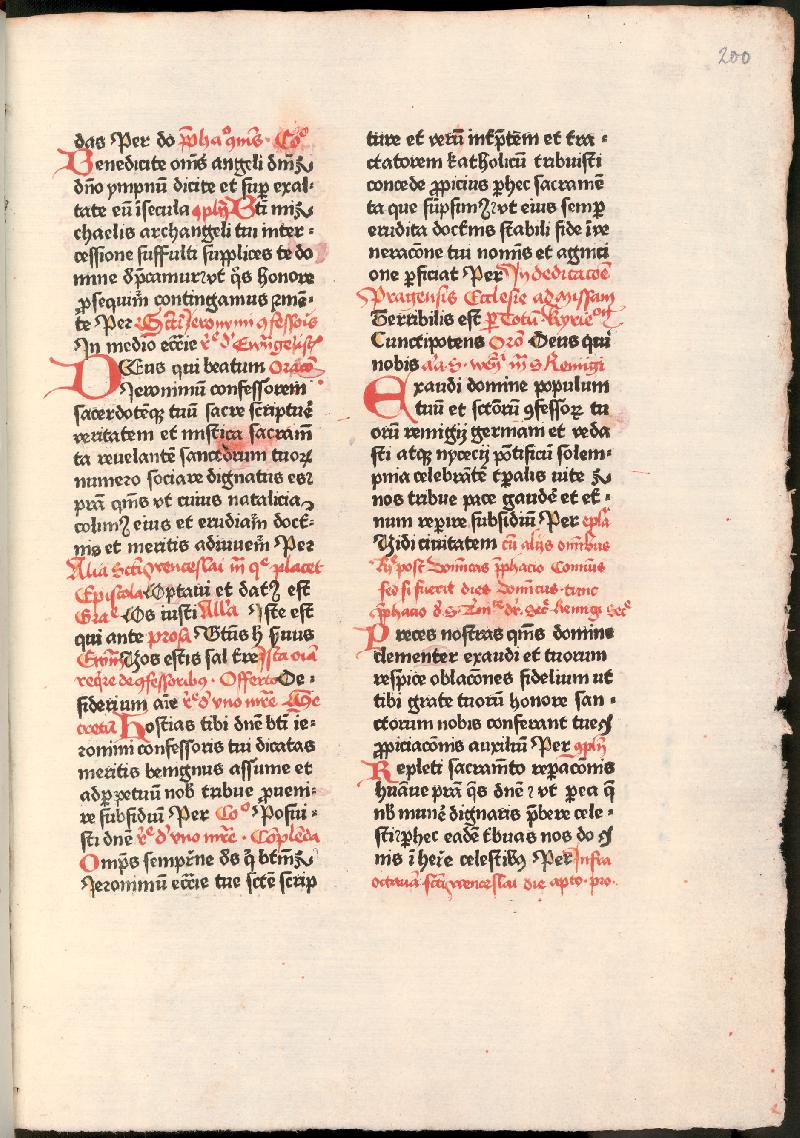 200
das Per do p̄ha qm̄s Co͞
Benedicite om̄s angeli dm̄
dn̄o ympnū dicite et suꝑ exal-
tate eū i secula ꝯpln̄ Bt̄i mi-
chaelis archangeli tui inter-
cessione suffulti supplices te do
mine dep̄camur vt q̄s honore
ꝓsequim̄ contingamus ⁊ mē-
te Per Sct̄i Jeronimi ꝯfessoris
In medio ecc̄ie rͤ d Ewn̄gelist
Deus qui beatum Oracō
Jeronimū confessorem
sacerdotēqꝫ tuū sacre scripture
veritatem et mistica sacram̄
ta reuelantē sanctorum tuoꝝ
numero sociare dignatus es
pr̄a qm̄s vt cuius natalicia
colimꝰ eius et erudiam̄ doct-
nis et meritis adiuuem̄ Per
Alia Sct̄i wenceslai m̄ qͤ placet
Epistola Optaui et datꝰ est
Gra Os iusti Alla Iste est
qui ante prosa Gt̄us h̄ s̄uus
Ewn̄ Vos estis sal tr̄e Ista oīa
req̄re de ꝯfessoribꝰ Offerto De-
siderium aīe rͤ d vno mr̄e Se
creta Hostias tibi dn̄e bt̄i ie-
ronimi confessoris tui dicatas
meritis benignus assume et
ad ꝑpetuū nob tribue ꝓueni-
re subsidium Per Co͞ Posui-
sti dn̄e rͤ d vno mr̄e Coꝑleda
Omp̄s sempr̄ne ds̄ q̄ bt̄m
Jeronimū ecc̄ie tue sctē scrip
ture et verū int̄ꝑtem et tra-
ctatorem katholicū tribuisti
concede ꝓpicius ꝑ hec sacramē
ta que sūpsimꝰ vt eius semꝑ
erudita doctrīs stabili fide i ve
neracōne tui nomīs et agniti
one ꝑficiat Per In dedicacōe
Pragensis Ecclesie ad Missam
Terribilis est ꝑ Totū Kyrie
Cunctipotens Oro͞ Deus qui
nobis Remigi
Exaudi domine populum
tuū et sctōrū ꝯfessoꝝ tu
orū remigij germani et veda
sti atqꝫ nycecij pōtificū solem-
pnia celebrātē tꝑalis vite
nos tribue pace gaudē et et-
num reꝑire subsidiū Per epl̄a
Vidi ciuitatem cū alijs omībus
post Dominicas p̄phacio Comīus
sed si fuerit dies Domīcus tunc
p̄phacio
Preces nostras qm̄s domine
clementer exaudi et tuorum
respice oblacōnes fidelium ut
tibi grate tuorū honore san-
ctorum nobis conferant tue
ꝓpiciacōnis auxiliū Per ꝯpln̄
Repleti sacramto reꝑacōnis
hūane pr̄a q̄s dn̄e vt ꝑ ea q̄
nb munē dignaris p̄bere cele-
sti ꝑ hec eadē tbuas nos do
nis i her̄e celestibꝰ Per Infra
octauā sct̄i wenceslai die apto pro